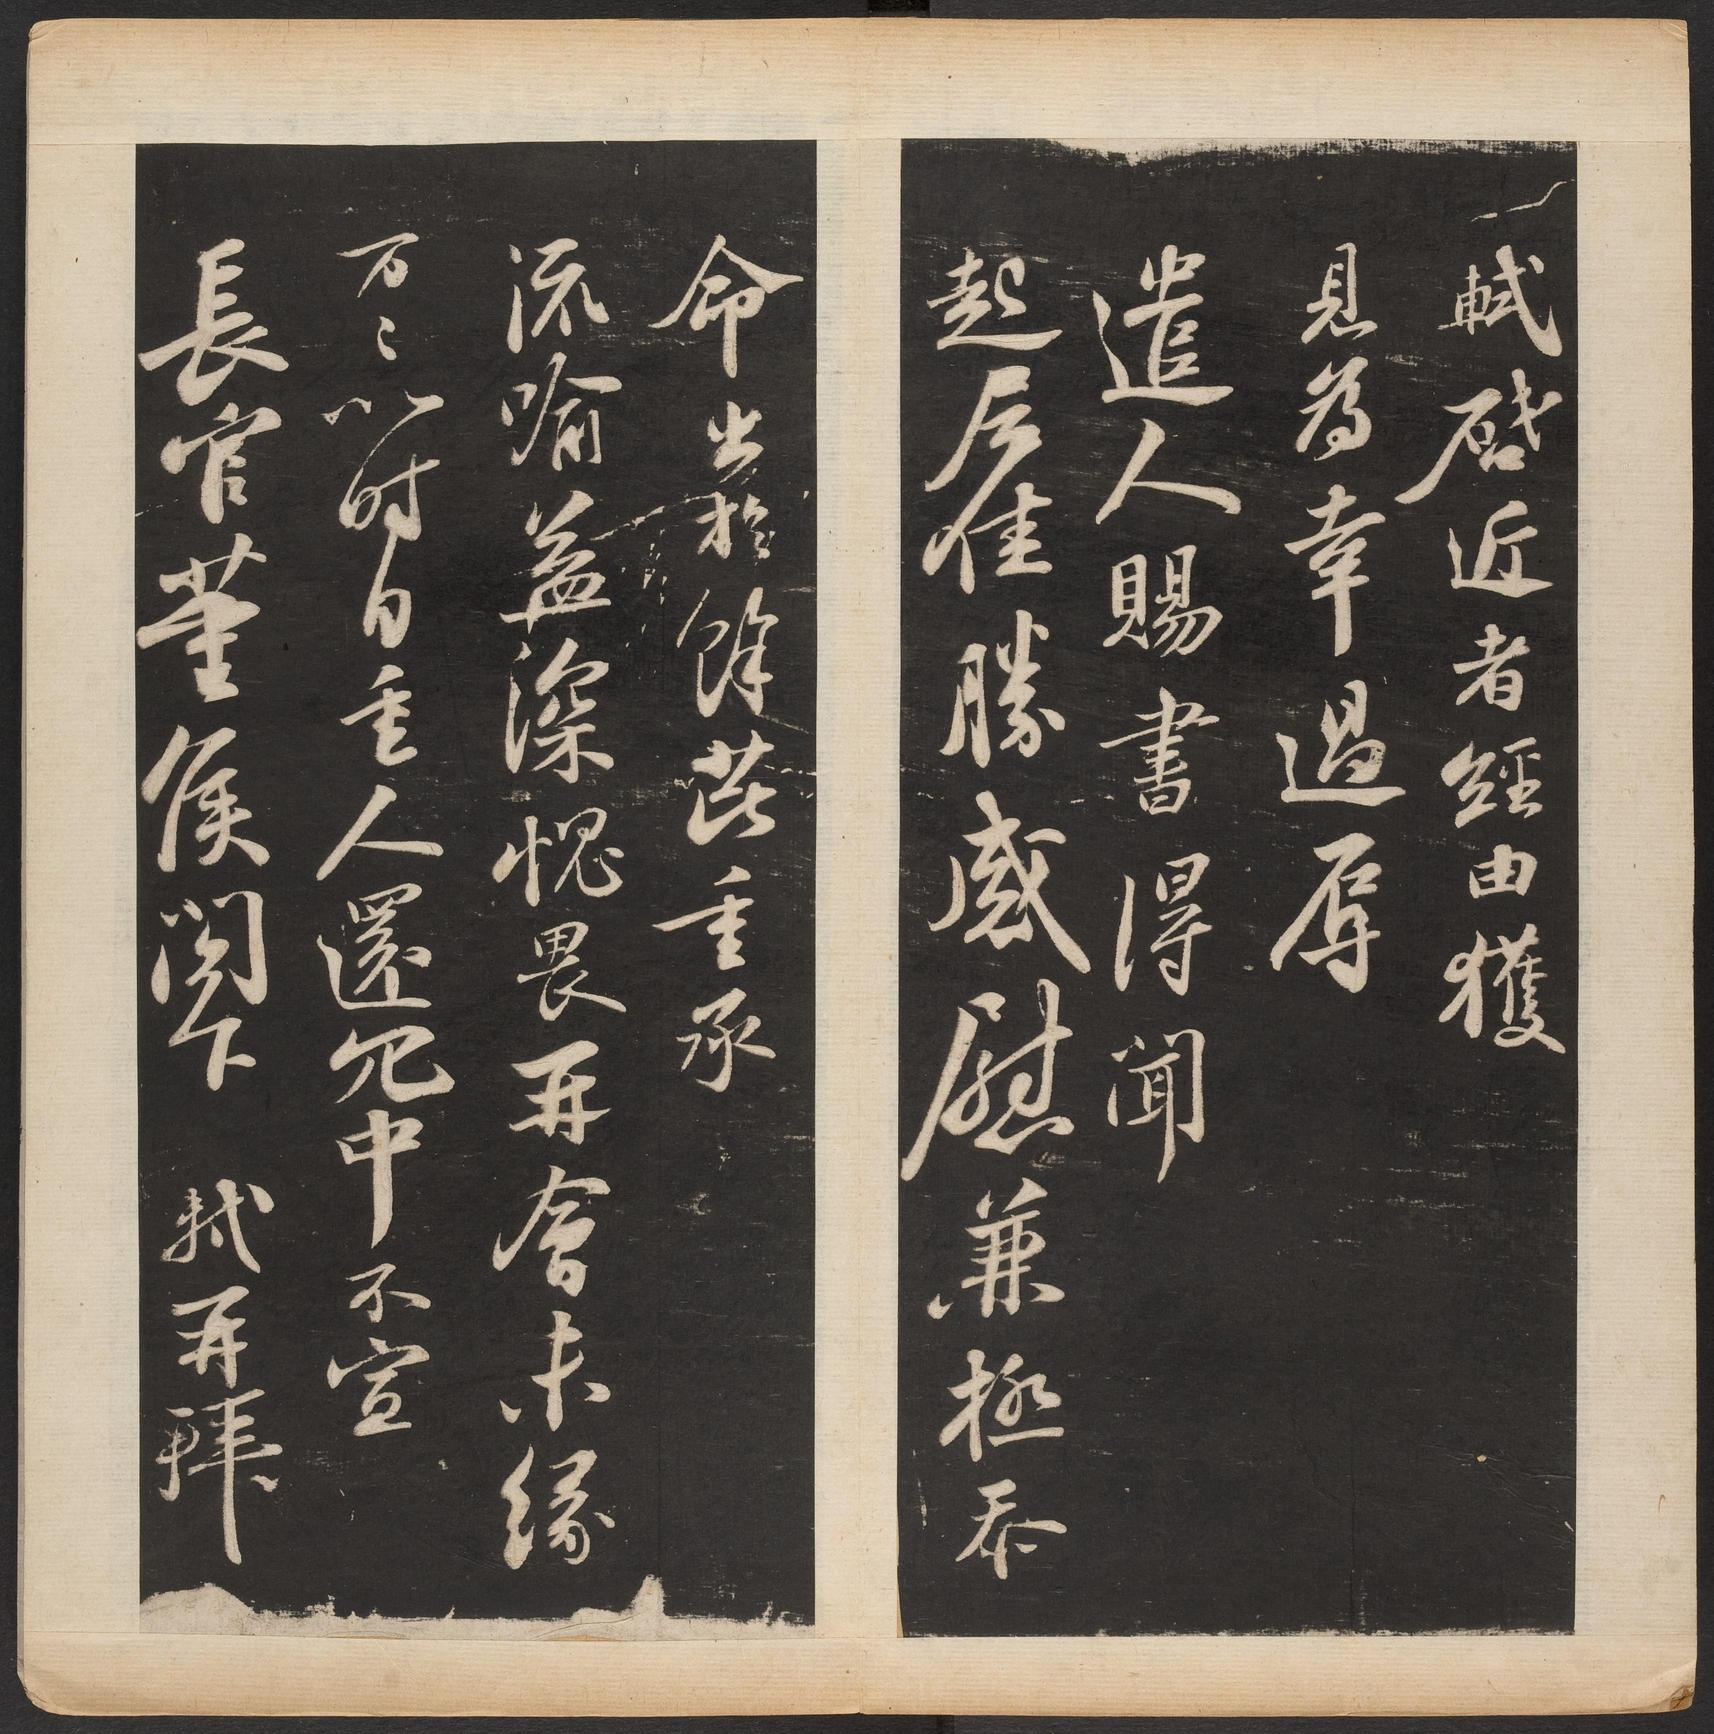 軾啓近者經由獲
見為幸過辱
遣人賜書得聞
起居佳勝感慰兼極忝
命出於餘芘重承
流喻益深愧畏再會未緣
万〻以時自重人還冗中不宣
長官董侯閣下 軾再拜